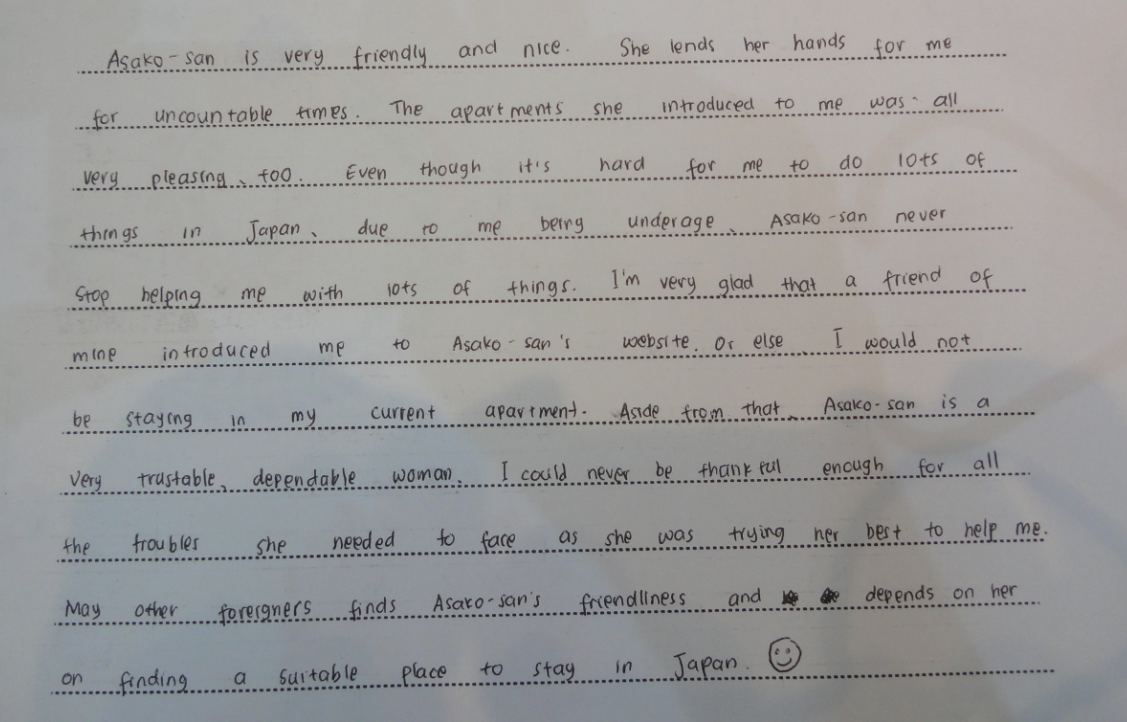 Asako-san is very friendly and nice. She lends her hands for me
for uncountable times. The apartments she introduced to me was all
very pleasing、too. Even though it's hard for me to do lots of
things in Japan、due to me being underage、Asako-san never
stop helping me with lots of things. I'm very glad that a friend of
mine introduced me to Asako-san's website. Or else、I would not
be staying in my current apartment. Aside from that、Asako-san is a
very trustable、dependable woman. I could never be thankful enough for all
the troubles she needed to face as she was trying her best to help me.
May other foreigners finds Asako-san's friendliness and depends on her
on finding a suitable place to stay in Japan.